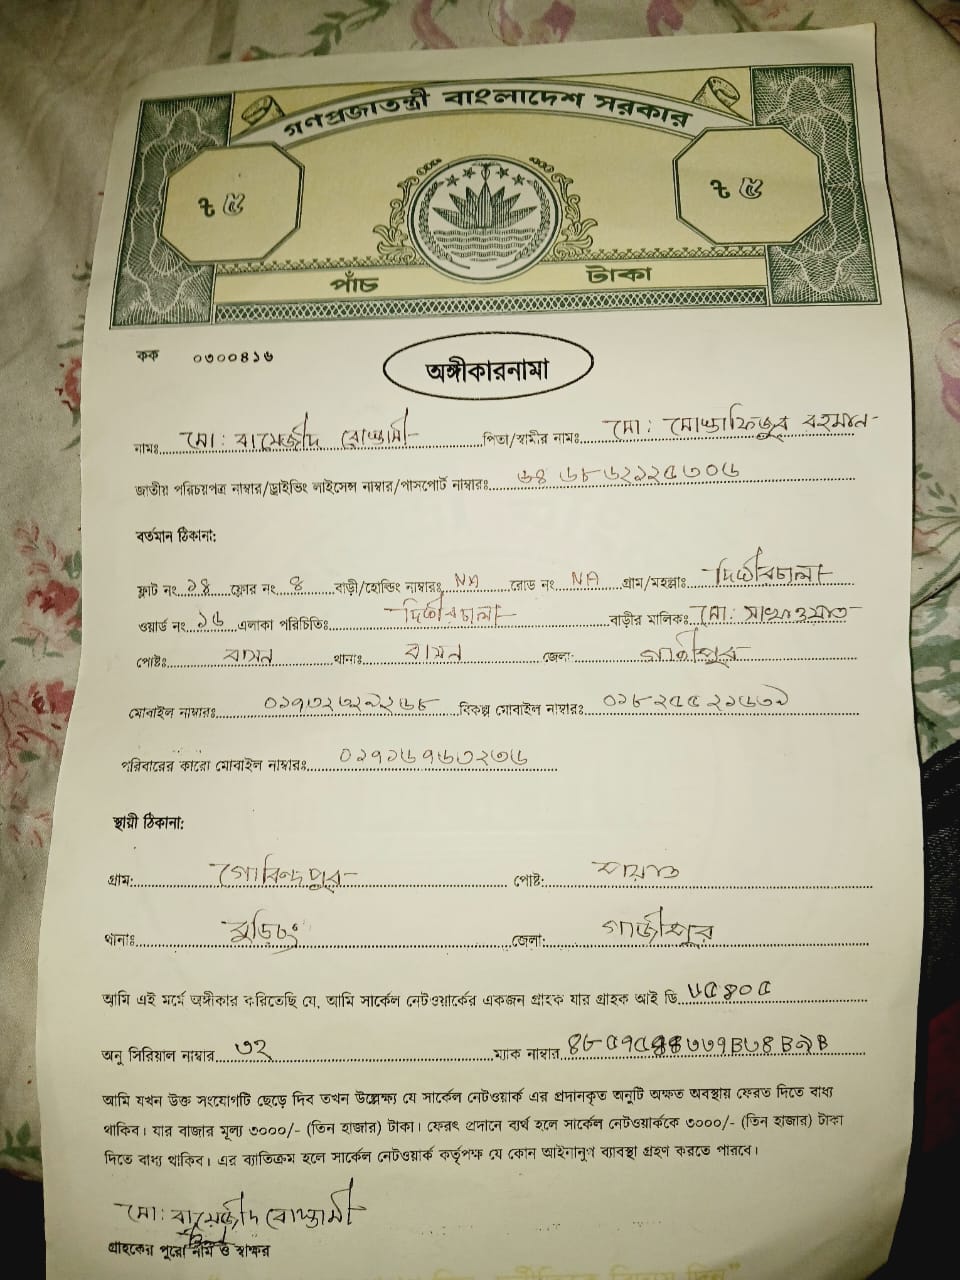 গণপ্রজাতন্ত্রী বাংলাদেশ সরকার
৳ ৫ ৳ ৫
পাঁচ টাকা
কক ০৩০০৪১৬
অঙ্গীকারনামা
নামঃ মো: বায়েজীদ বোস্তামী পিতা/স্বামীর নামঃ মো: মোস্তাফিজুর রহমান
জাতীয় পরিচয়পত্র নাম্বার/ড্রাইভিং লাইসেন্স নাম্বার/পাসপোর্ট নাম্বারঃ
বর্তমান ঠিকানা:
ফ্লাট নং ১৪ ফ্লোর নং ৪ বাড়ী/হোল্ডিং নাম্বারঃ NA রোড নং NA গ্রাম/মহল্লাঃ দিঘীরচালা
ওয়ার্ড নং ১৬ এলাকা পরিচিতিঃ দিঘীরচালা বাড়ীর মালিকঃ মো: সাখাওয়াত
পোষ্টঃ বাসন থানাঃ বাসন জেলা: গাজীপুর
মোবাইল নাম্বারঃ বিকল্প মোবাইল নাম্বারঃ
পরিবারের কারো মোবাইল নাম্বারঃ
স্থায়ী ঠিকানা:
গ্রাম: গোবিন্দপুর পোষ্ট:
থানাঃ বুড়িচং জেলা: গাজীপুর
আমি এই মর্মে অঙ্গীকার করিতেছি যে, আমি সার্কেল নেটওয়ার্কের একজন গ্রাহক যার গ্রাহক আই ডি
অনু সিরিয়াল নাম্বার ৩২ ম্যাক নাম্বার
আমি যখন উক্ত সংযোগটি ছেড়ে দিব তখন উল্লেক্ষ্য যে সার্কেল নেটওয়ার্ক এর প্রদানকৃত অনুটি অক্ষত অবস্থায় ফেরত দিতে বাধ্য
থাকিব। যার বাজার মূল্য ৩০০০/- (তিন হাজার) টাকা। ফেরৎ প্রদানে ব্যর্থ হলে সার্কেল নেটওয়ার্ককে ৩০০০/- (তিন হাজার) টাকা
দিতে বাধ্য থাকিব। এর ব্যাতিক্রম হলে সার্কেল নেটওয়ার্ক কর্তৃপক্ষ যে কোন আইনানুগ ব্যাবস্থা গ্রহণ করতে পারবে।
মো: বায়েজীদ বোস্তামী
গ্রাহকের পুরো নাম ও স্বাক্ষর